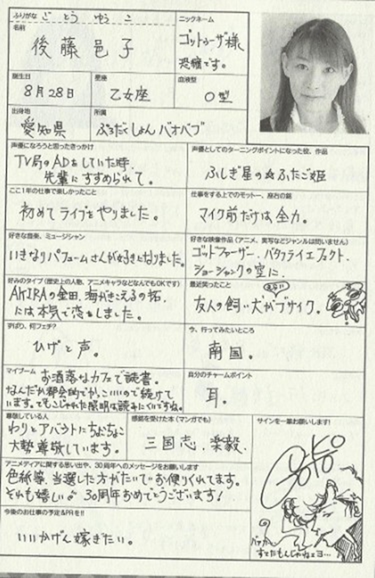 ふりがな ごとう ゆうこ
名前 後藤邑子
ニックネーム
ゴットゥーザ様
恐縮です。
誕生日 8月28日
星座 乙女座
血液型 O型
出身地 愛知県
所属 ぷろだくしょんバオバブ
声優になろうと思ったきっかけ
TV局のADをしていた時、
先輩にすすめられて。
声優としてのターニングポイントになった役、作品
ふしぎ星の☆ふたご姫
ここ1年の仕事で楽しかったこと
初めてライブをやりました。
仕事をする上でのモットー、座右の銘
マイク前だけは全力。
好きな音楽、ミュージシャン
いきなりパフュームさんが好きになりました。
好きな映像作品(アニメ、実写などジャンルは問いません)
ゴッドファーザー、バタフライエフェクト、
ショーシャンクの空に。
好みのタイプ(歴史上の人物、アニメキャラなどなんでもOKです)
AKIRAの金田、海がきこえるの拓
には本気で恋をしました。
最近笑ったこと
友人の飼い犬がブサイク。
ずばり、何フェチ?
ひげと声。
今、行ってみたいところ
南国。
マイブーム お洒落なカフェで読書。
なんだか都会的でかっこいいので続けて
います。でもこじゃれた照明は読みにくいですね。
自分のチャームポイント
耳。
尊敬している人
わりとアバウトにちょこちょこ
大勢尊敬しています。
感銘を受けた本(マンガでも)
三国志、楽毅。
サインを一筆お願いします!
アニメディアに関する思い出や、30周年へのメッセージをお願いします
色紙等、当選した方がたいてお便りくれてます。
それも嬉しい♪ 30周年おめでとうございます!
今後のお仕事の予定&PRを!!
いいかげん嫁ぎたい。